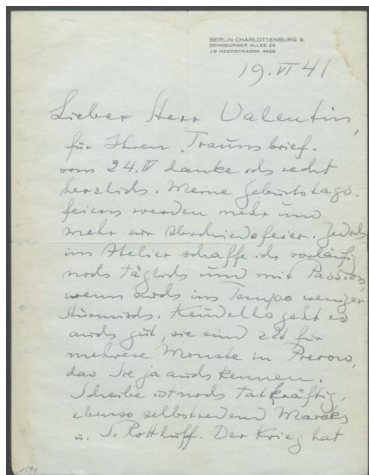 BERLIN-CHARLOTTENBURG 9.
SENSBURGER ALLEE 25
J 9 HEERSTRASSE 4926
19. VI 41
Lieber Herr Valentin,
für Ihren Traumbrief
vom 24. IV danke ich recht
herzlich. Meine Geburtstags-
feiern werden mehr und
mehr zur Abschiedsfeier. Jedoch
im Atelier schaffe ich vorläufig
noch täglich und mit Passion,
wenn auch im Tempo weniger
stürmisch. geht es
auch gut, sie sind zZt für
mehrere Monate in Prerow,
das Sie ja auch kennen.
Scheibe ist noch tatkräftig,
ebenso selbstredend Marcks
u. S. Rottluff. Der Krieg hat